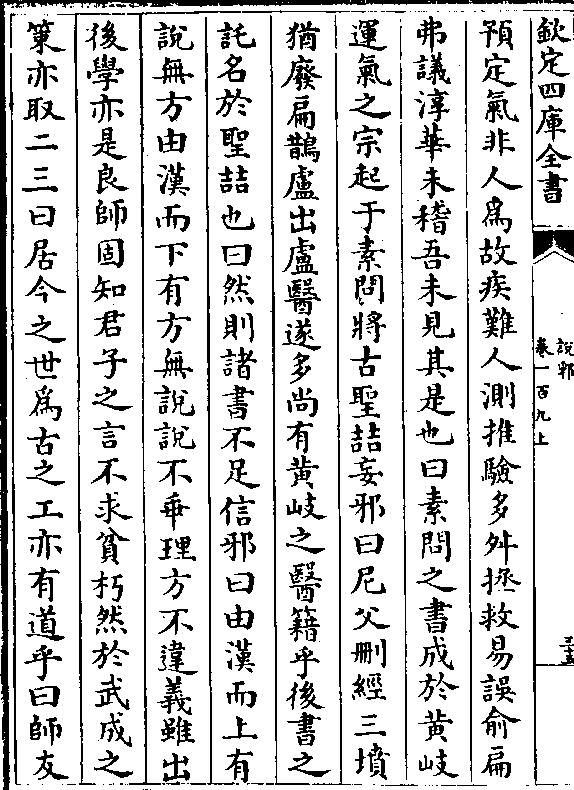 欽定四庫全書
説郛
卷一百九上
三十五
預定氣非人爲故疾難人測推驗多舛拯救易誤俞扁
弗議淳華未稽吾未見其是也曰素問之書成於黄岐
運氣之宗起于素問將古聖喆妄邪曰尼父刪經三墳
猶廢扁鵲盧出盧醫遂多尚有黄岐之醫籍乎後書之
託名於聖喆也曰然則諸書不足信邪曰由漢而上有
説無方由漢而下有方無説説不乖理方不違義雖出
後學亦是良師固知君子之言不求貧朽然於武成之
策亦取二三曰居今之世爲古之工亦有道乎曰師友